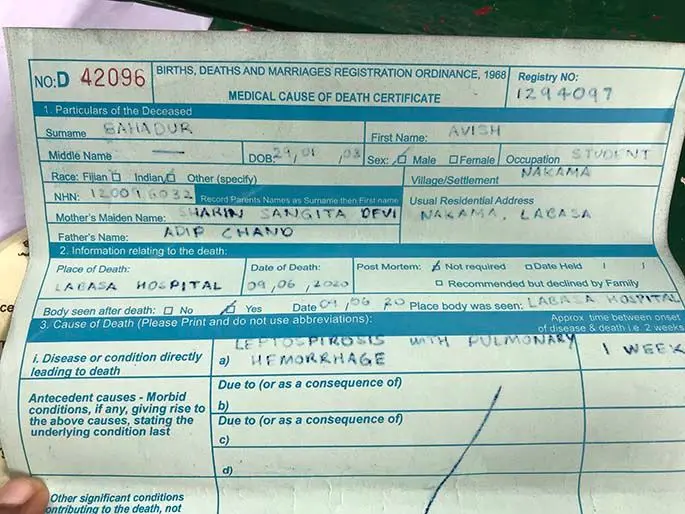 NO: D 42096
BIRTHS, DEATHS AND MARRIAGES REGISTRATION ORDINANCE, 1968
MEDICAL CAUSE OF DEATH CERTIFICATE
Registry NO:
1294097
1. Particulars of the Deceased
Surname BAHADUR
First Name: AVISH
Middle Name —
DOB: 29/01/03
Sex: Male Female
Occupation STUDENT
Race: Fijian Indian Other (specify)
Village/Settlement NAKAMA
NHN: 120096032
Record Parents Names as Surname then First name
Usual Residential Address
NAKAMA, LABASA
Mother's Maiden Name: SHARIN SANGITA DEVI
Father's Name: ADIP CHAND
2. Information relating to the death:
Place of Death:
LABASA HOSPITAL
Date of Death:
09/06/2020
Post Mortem: Not required Date Held / /
Recommended but declined by Family
Body seen after death: No Yes Date 09/06/20 Place body was seen: LABASA HOSPITAL
3. Cause of Death (Please Print and do not use abbreviations):
Approx time between onset
of disease & death i.e. 2 weeks
i. Disease or condition directly
leading to death
a) LEPTOSPIROSIS WITH PULMONARY
HEMORRHAGE
1 WEEK
Antecedent causes - Morbid
conditions, if any, giving rise to
the above causes, stating the
underlying condition last
Due to (or as a consequence of)
b)
Due to (or as a consequence of)
c)
d)
Other significant conditions
contributing to the death, not